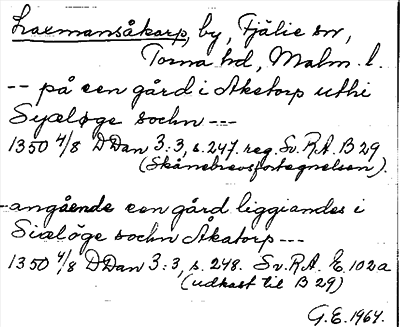 Laxmansåkarp, by, Fjälie sn,
Torna hd, Malm. l.
-- på een gård i Aketorp uthi
Syæløge sochn ---
1350 4/8 DDan 3:3, s. 247. reg. Sv. R.A. B 29
(Skånebrevsfortegnelsen).
--angående een gård liggiandes i
Siælöge sochn Åkatorp---
1350 4/8 DDan 3:3, s. 248. Sv. R.A. E 102a
(udkast til B 29)
G.E. 1964.